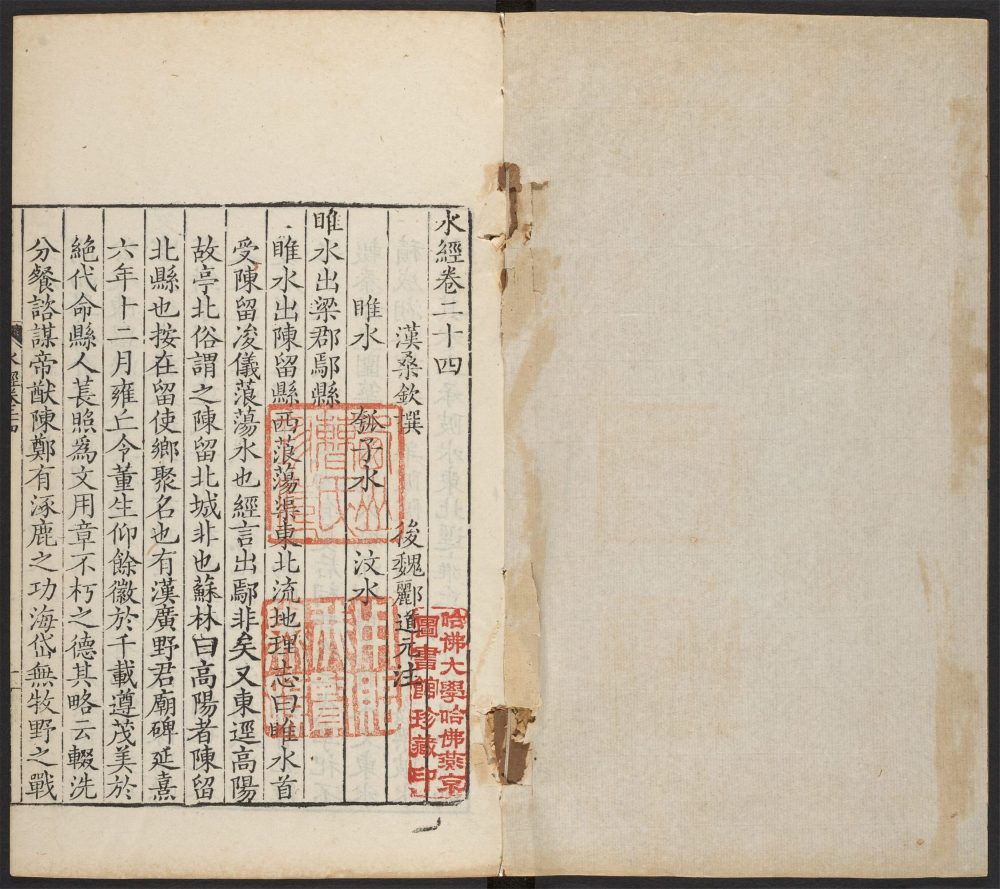 水經卷二十四
漢桑欽撰 後魏酈道元注
睢水 瓠子水 汶水
睢水出梁郡鄢縣
睢水出陳留縣西蒗蕩渠東北流地理志曰睢水首
受陳留浚儀蒗蕩水也經言出鄢非矣又東逕高陽
故亭北俗謂之陳留北城非也蘇林曰高陽者陳留
北縣也按在留使鄉聚名也有漢廣野君廟碑延熹
六年十二月雍丘令董生仰餘徽於千載遵茂美於
絕代命縣人萇照為文用章不朽之德其略云輟洗
分餐諮謀帝猷陳鄭有涿鹿之功海岱無牧野之戰
哈佛大學哈佛燕京
圖書館珍藏印